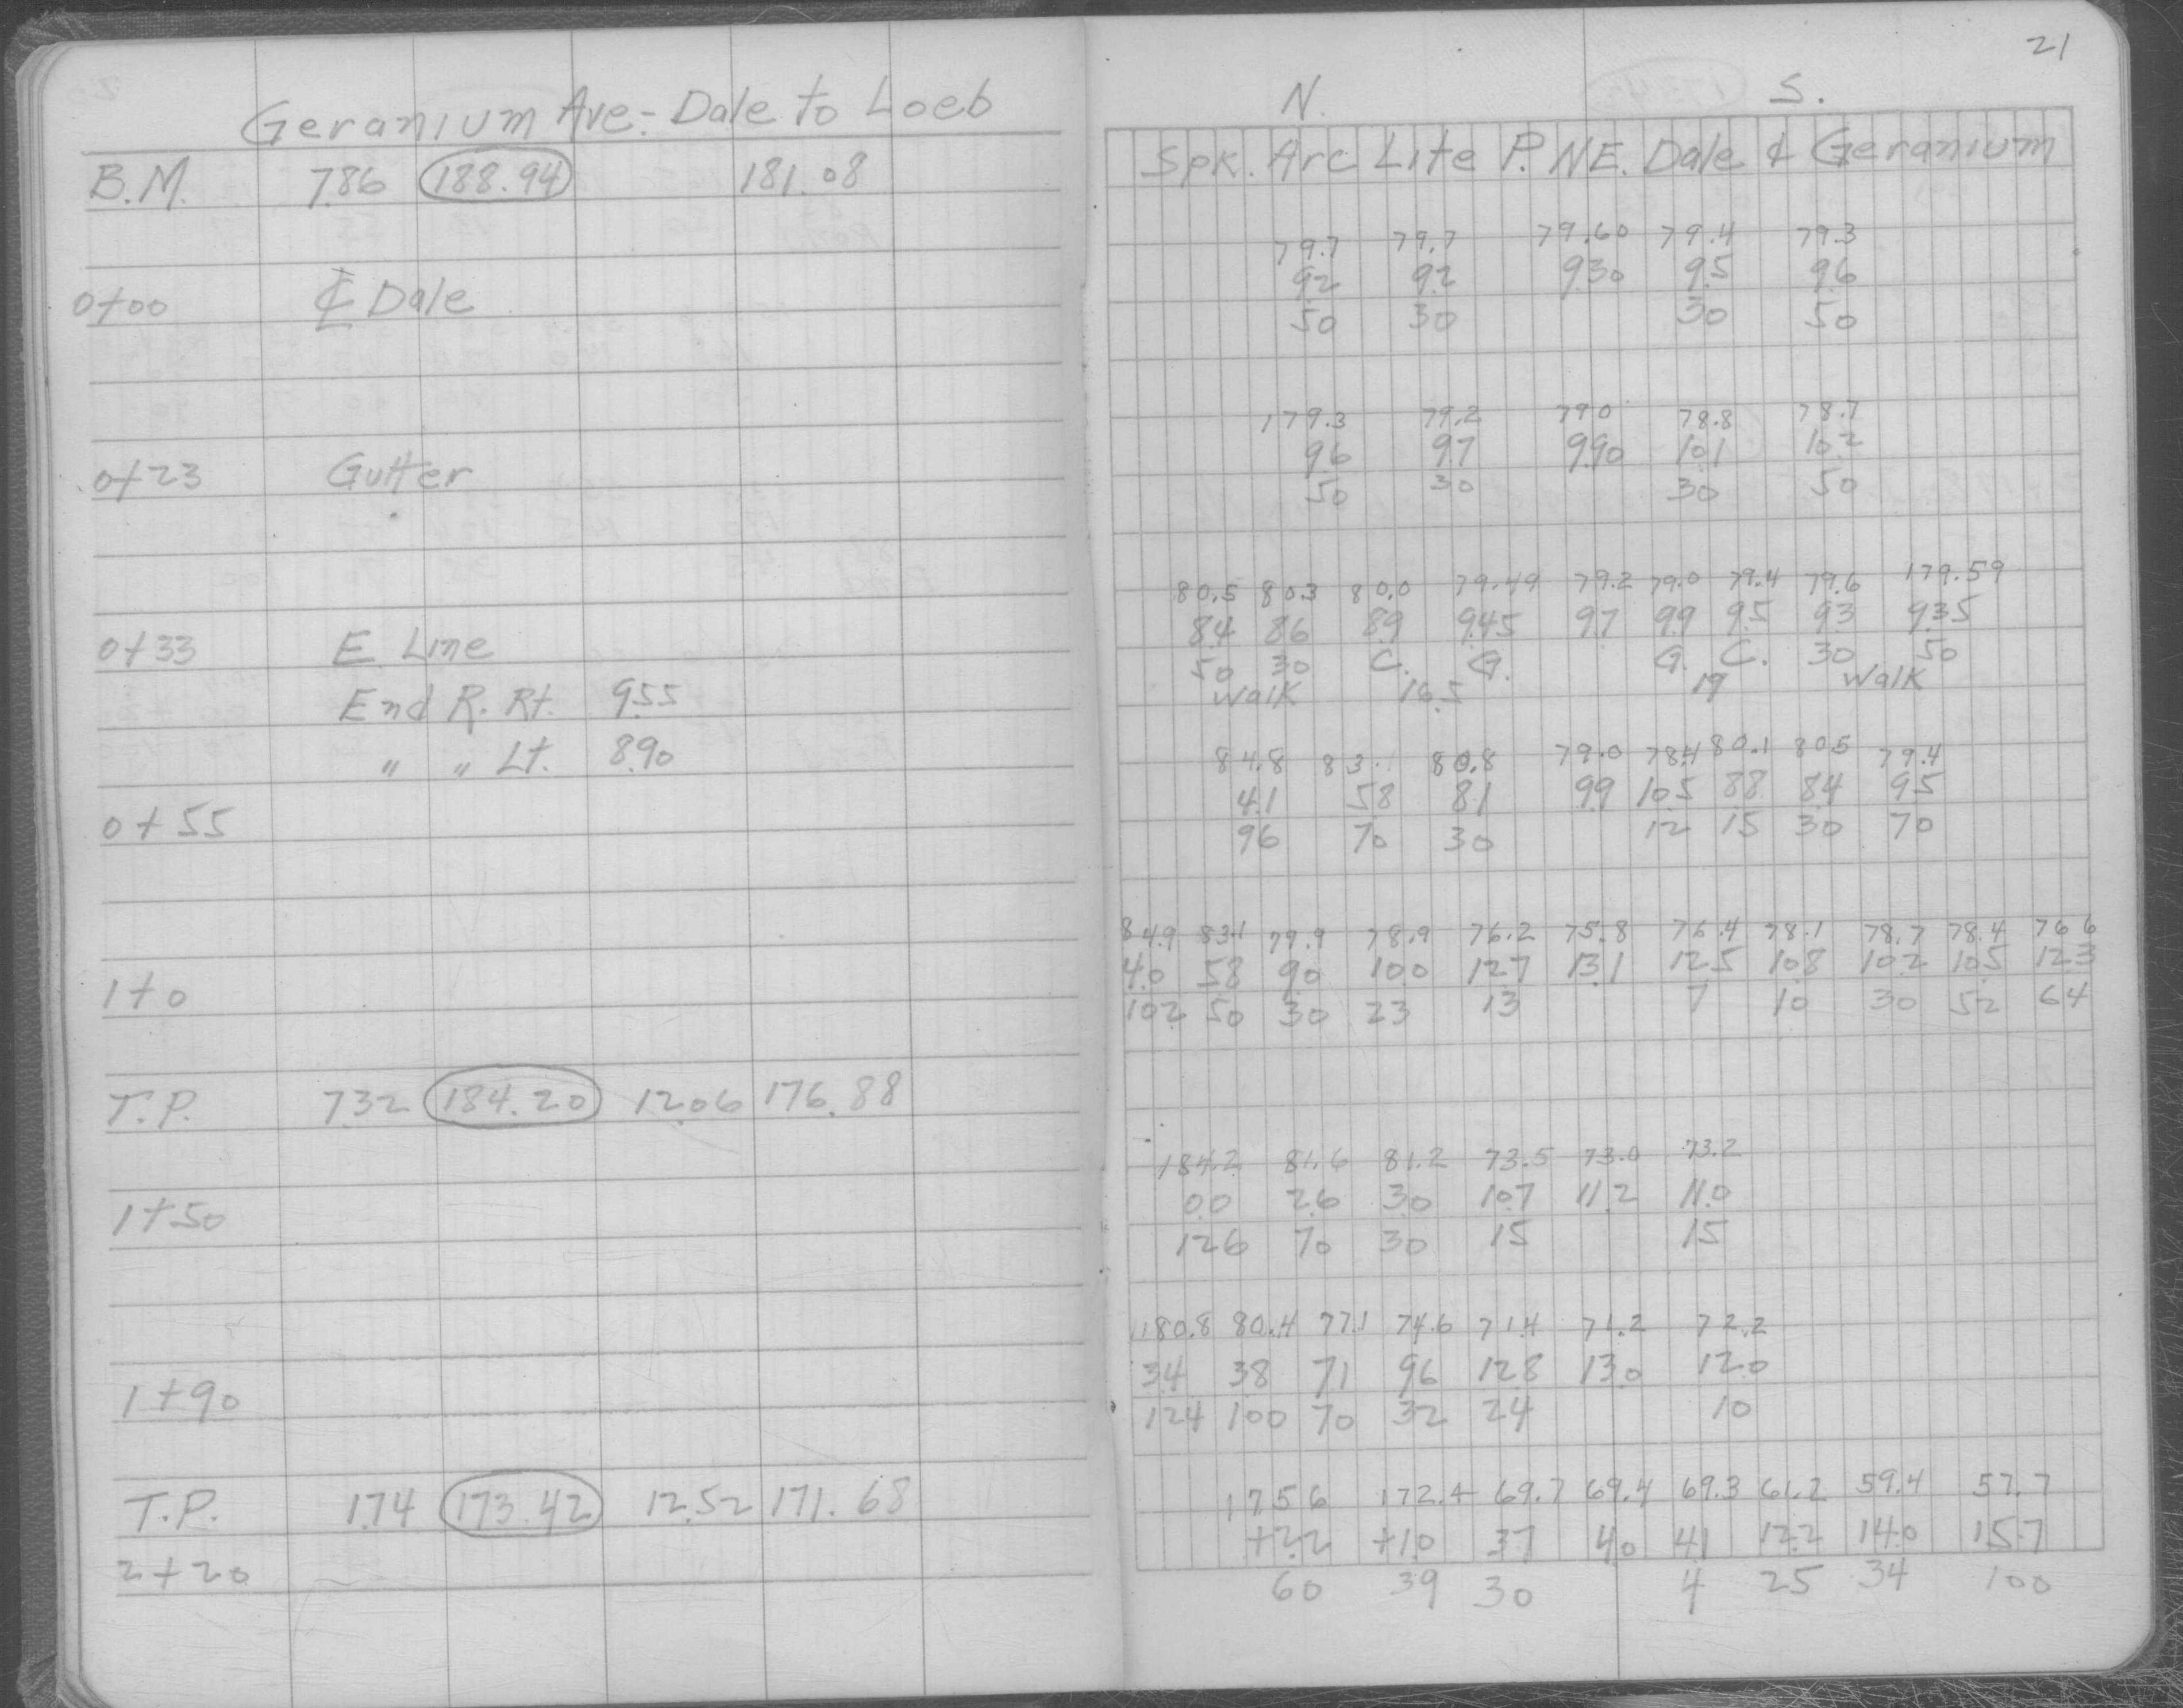 21
Geranium Ave.- Dale to Loeb
B.M. 7.86 188.94 181.08
0+00 ℄ Dale
0+23 Gutter
0+33 E. Line
End R. Rt. 9.55
" " Lt. 8.90
0+55
1+0
T.P. 7.32 184.20 12.06 176.88
1+50
1+90
T.P. 1.74 173.42 12.52 171.68
2+20
N. S.
Spk. Arc Lite P. NE. Dale & Geranium
79.7 79.7 79.60 79.4 79.3
9.2 9.2 9.30 9.5 9.6
50 30 30 50
179.3 79.2 79.0 78.8 78.7
9.6 9.7 9.90 10.1 10.2
50 30 30 50
80.5 80.3 80.0 79.49 79.2 79.0 79.4 79.6 179.59
8.4 8.6 8.9 9.45 9.7 9.9 9.5 9.3 9.35
50 30 C. G. G. C. 30 50
Walk 16.5 19 Walk
84.8 83.1 80.8 79.0 78.4 80.1 80.5 79.4
4.1 5.8 8.1 9.9 10.5 8.8 8.4 9.5
96 70 30 12 15 30 70
84.9 83.1 79.9 78.9 76.2 75.8 76.4 78.1 78.7 78.4 76.6
4.0 5.8 9.0 10.0 12.7 13.1 12.5 10.8 10.2 10.5 12.3
102 50 30 23 13 7 10 30 52 64
184.2 81.6 81.2 73.5 73.0 73.2
0.0 2.6 3.0 10.7 11.2 11.0
126 70 30 15 15
180.8 80.4 77.1 74.6 71.4 71.2 72.2
3.4 3.8 7.1 9.6 12.8 13.0 12.0
124 100 70 32 24 10
175.6 172.4 69.7 69.4 69.3 61.2 59.4 57.7
+2.2 +1.0 3.7 4.0 4.1 12.2 14.0 15.7
60 39 30 4 25 34 100